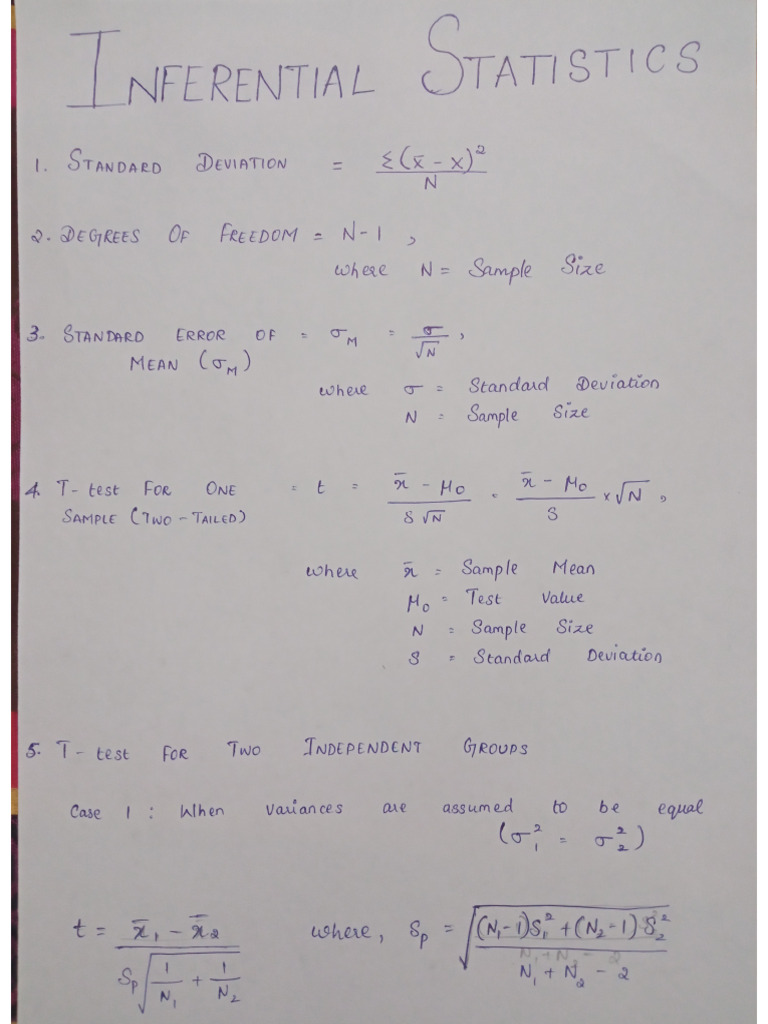 INFERENTIAL STATISTICS
1. STANDARD DEVIATION = Σ(x̄ - x)² / N
2. DEGREES OF FREEDOM = N-1 ,
where N = Sample Size
3. STANDARD ERROR OF MEAN (σ_M) = σ_M = σ / √N ,
where σ = Standard Deviation
N = Sample Size
4. T-test FOR ONE SAMPLE (TWO-TAILED) = t = (x̄ - μ₀) / (S √N) = (x̄ - μ₀) / S × √N ,
where x̄ = Sample Mean
μ₀ = Test Value
N = Sample Size
S = Standard Deviation
5. T-test FOR TWO INDEPENDENT GROUPS
Case 1 : When variances are assumed to be equal
(σ₁² = σ₂²)
t = (x̄₁ - x̄₂) / (Sp √(1/N₁ + 1/N₂)) where, Sp = √(((N₁-1)S₁² + (N₂-1)S₂²) / (N₁ + N₂ - 2))